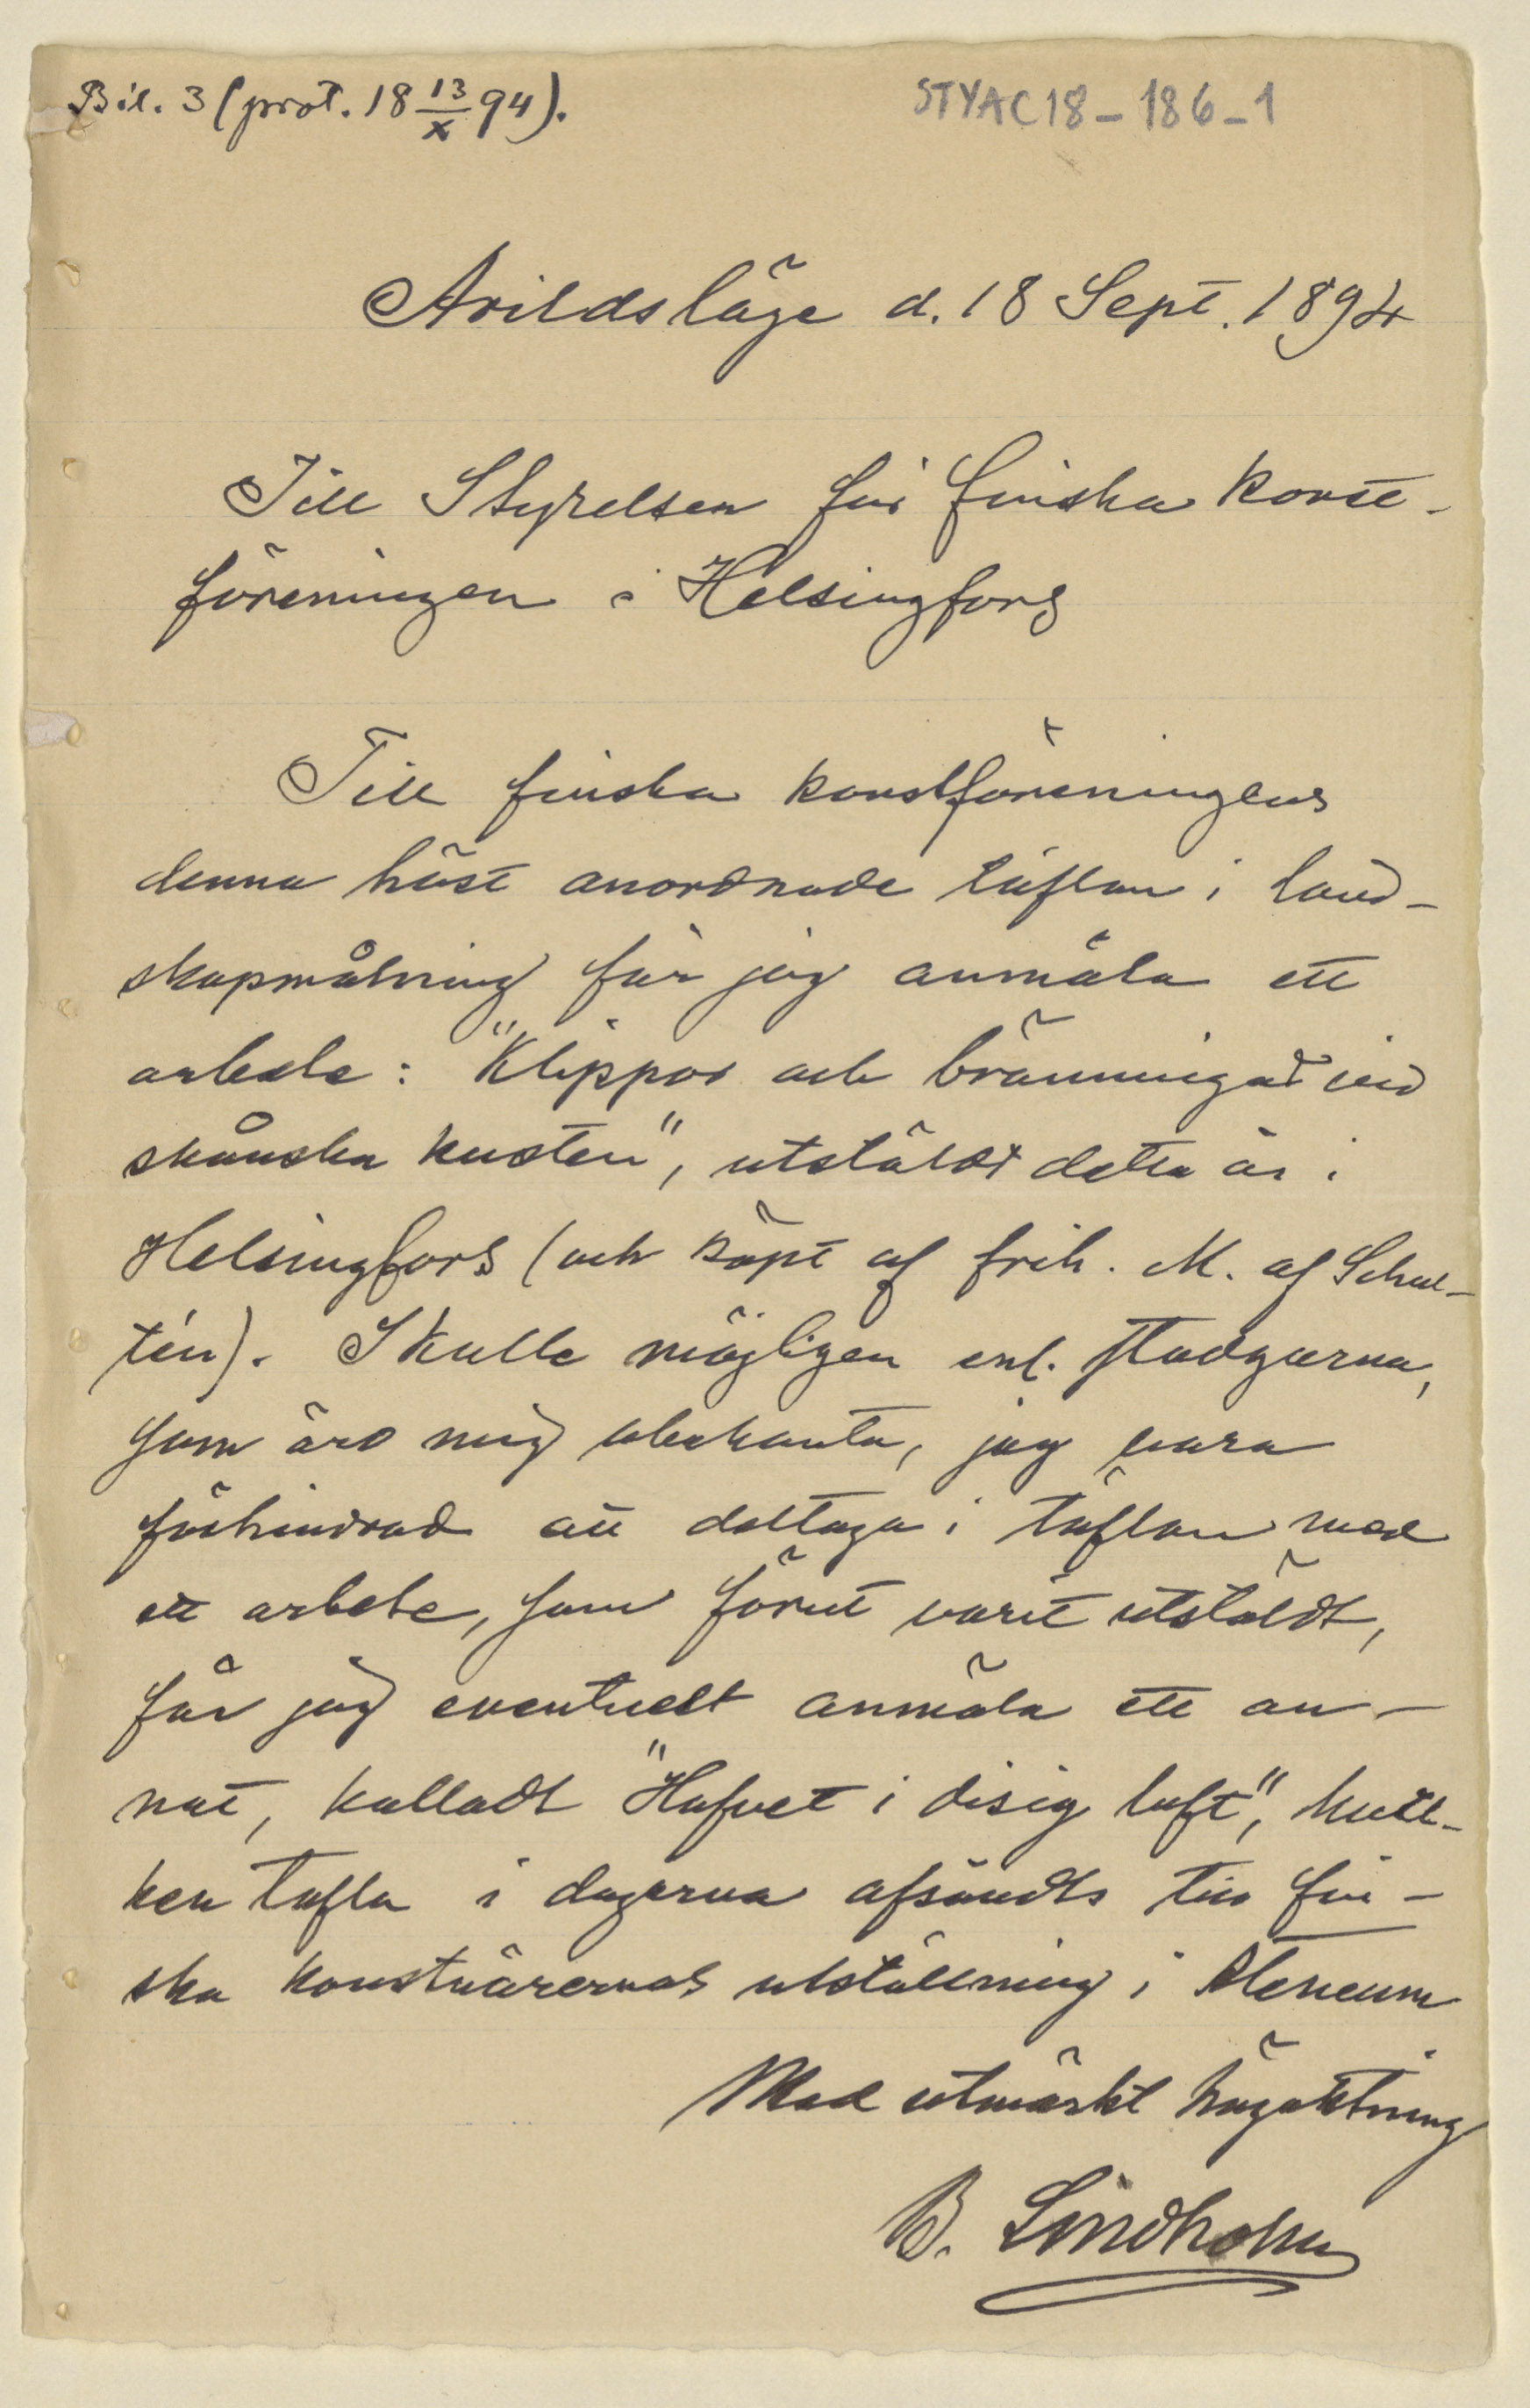 Bil. 3 (prot. 18 13/X 94).
STYAC18-186-1
Arildsläge d. 18 Sept. 1894
Till Styrelsen för finska konst-
föreningen i Helsingfors
Till finska konstföreningens
denna höst anordnade täflan i land-
skapmålning får jag anmäla ett
arbete: "Klippor och bränningar vid
skånska kusten", utstäldt detta år i
Helsingfors (och köpt af frih. M. af Schul-
tén). Skulle möjligen enl. stadgarna,
som äro mig obekanta, jag vara
förhindrad att deltaga i täflan med
ett arbete, som förut varit utstäldt,
får jag eventuelt anmäla ett an-
nat, kalladt "Hafvet i disig luft", hvil-
ken tafla i dagarna afsändts till fin-
ska konstnärernas utställning i Ateneum
Med utmärkt högaktning
B. Lindholm